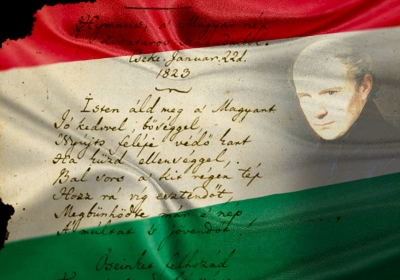 Hymnus, a' Magyar nép
Cseke. Január. 22d.
1823
Isten áld meg a' Magyart
Jó kedvvel, bőséggel,
Nyújts feléje védő kart
Ha küzd ellenséggel,
Bal sors a' kit régen tép
Hozz rá víg esztendőt,
Megbűnhödte már e' nép
A' multat 's jövendőt.
Őseinket felhozád